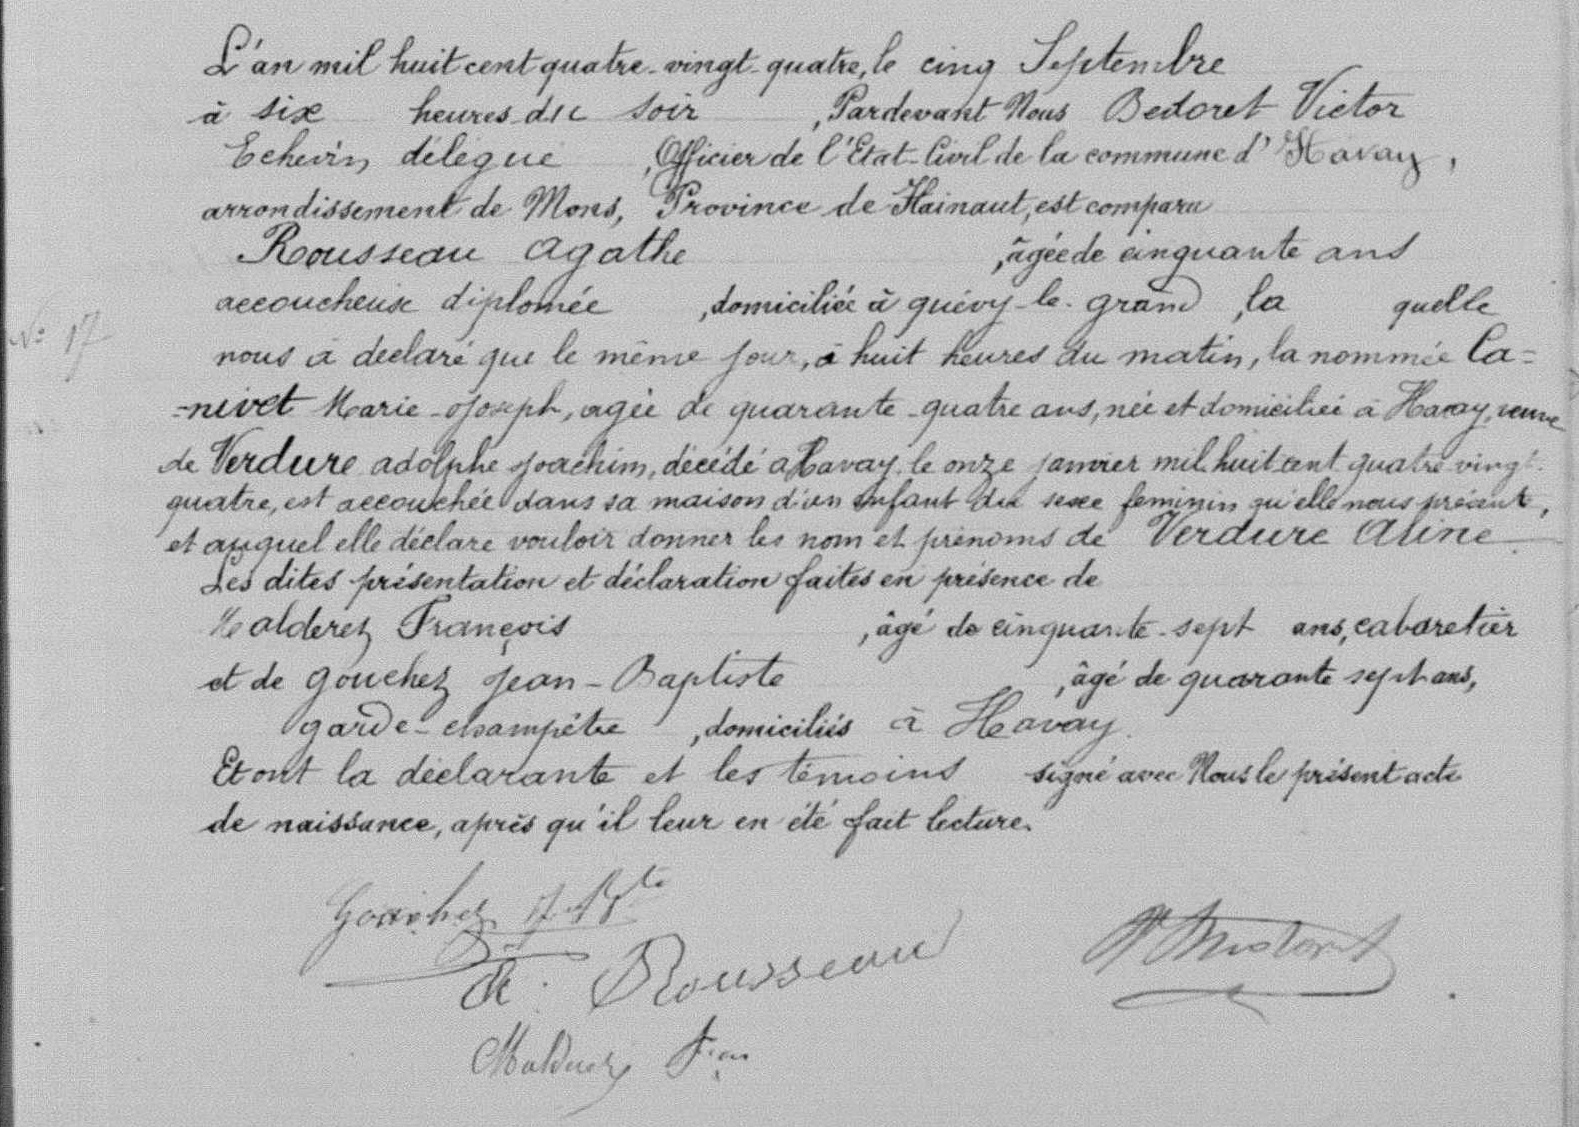 L'an mil huit cent quatre-vingt-quatre, le cinq Septembre
à six heures du soir, Pardevant Nous Bedoret Victor
Echevin délégué, Officier de l'Etat-Civil de la commune d'Havay,
arrondissement de Mons, Province de Hainaut, est comparu
Rousseau Agathe, âgée de cinquante ans
accoucheuse diplomée, domiciliée à Quévy-le-grand, la quelle
N° 17
nous a déclaré que le même jour, à huit heures du matin, la nommée Ca=
=nivet Marie-Joseph, agée de quarante-quatre ans, née et domiciliée à Havay, veuve
de Verdure Adolphe Joachim, décédé a Havay le onze janvier mil huit cent quatre vingt-
quatre, est accouchée dans sa maison d'un enfant du sexe feminin qu'elle nous présente,
et auquel elle déclare vouloir donner les nom et prénoms de Verdure Aline
Les dites présentation et déclaration faites en présence de
Malderez François, âgé de cinquante-sept ans, cabaretier
et de Gouchez Jean-Baptiste, âgé de quarante sept ans,
garde-champêtre, domiciliés à Havay.
Et ont la déclarante et les témoins signé avec Nous le présent acte
de naissance, après qu'il leur en été fait lecture.
Gouchez J. Bte
A. Rousseau
V Bedoret
Malderez Fran